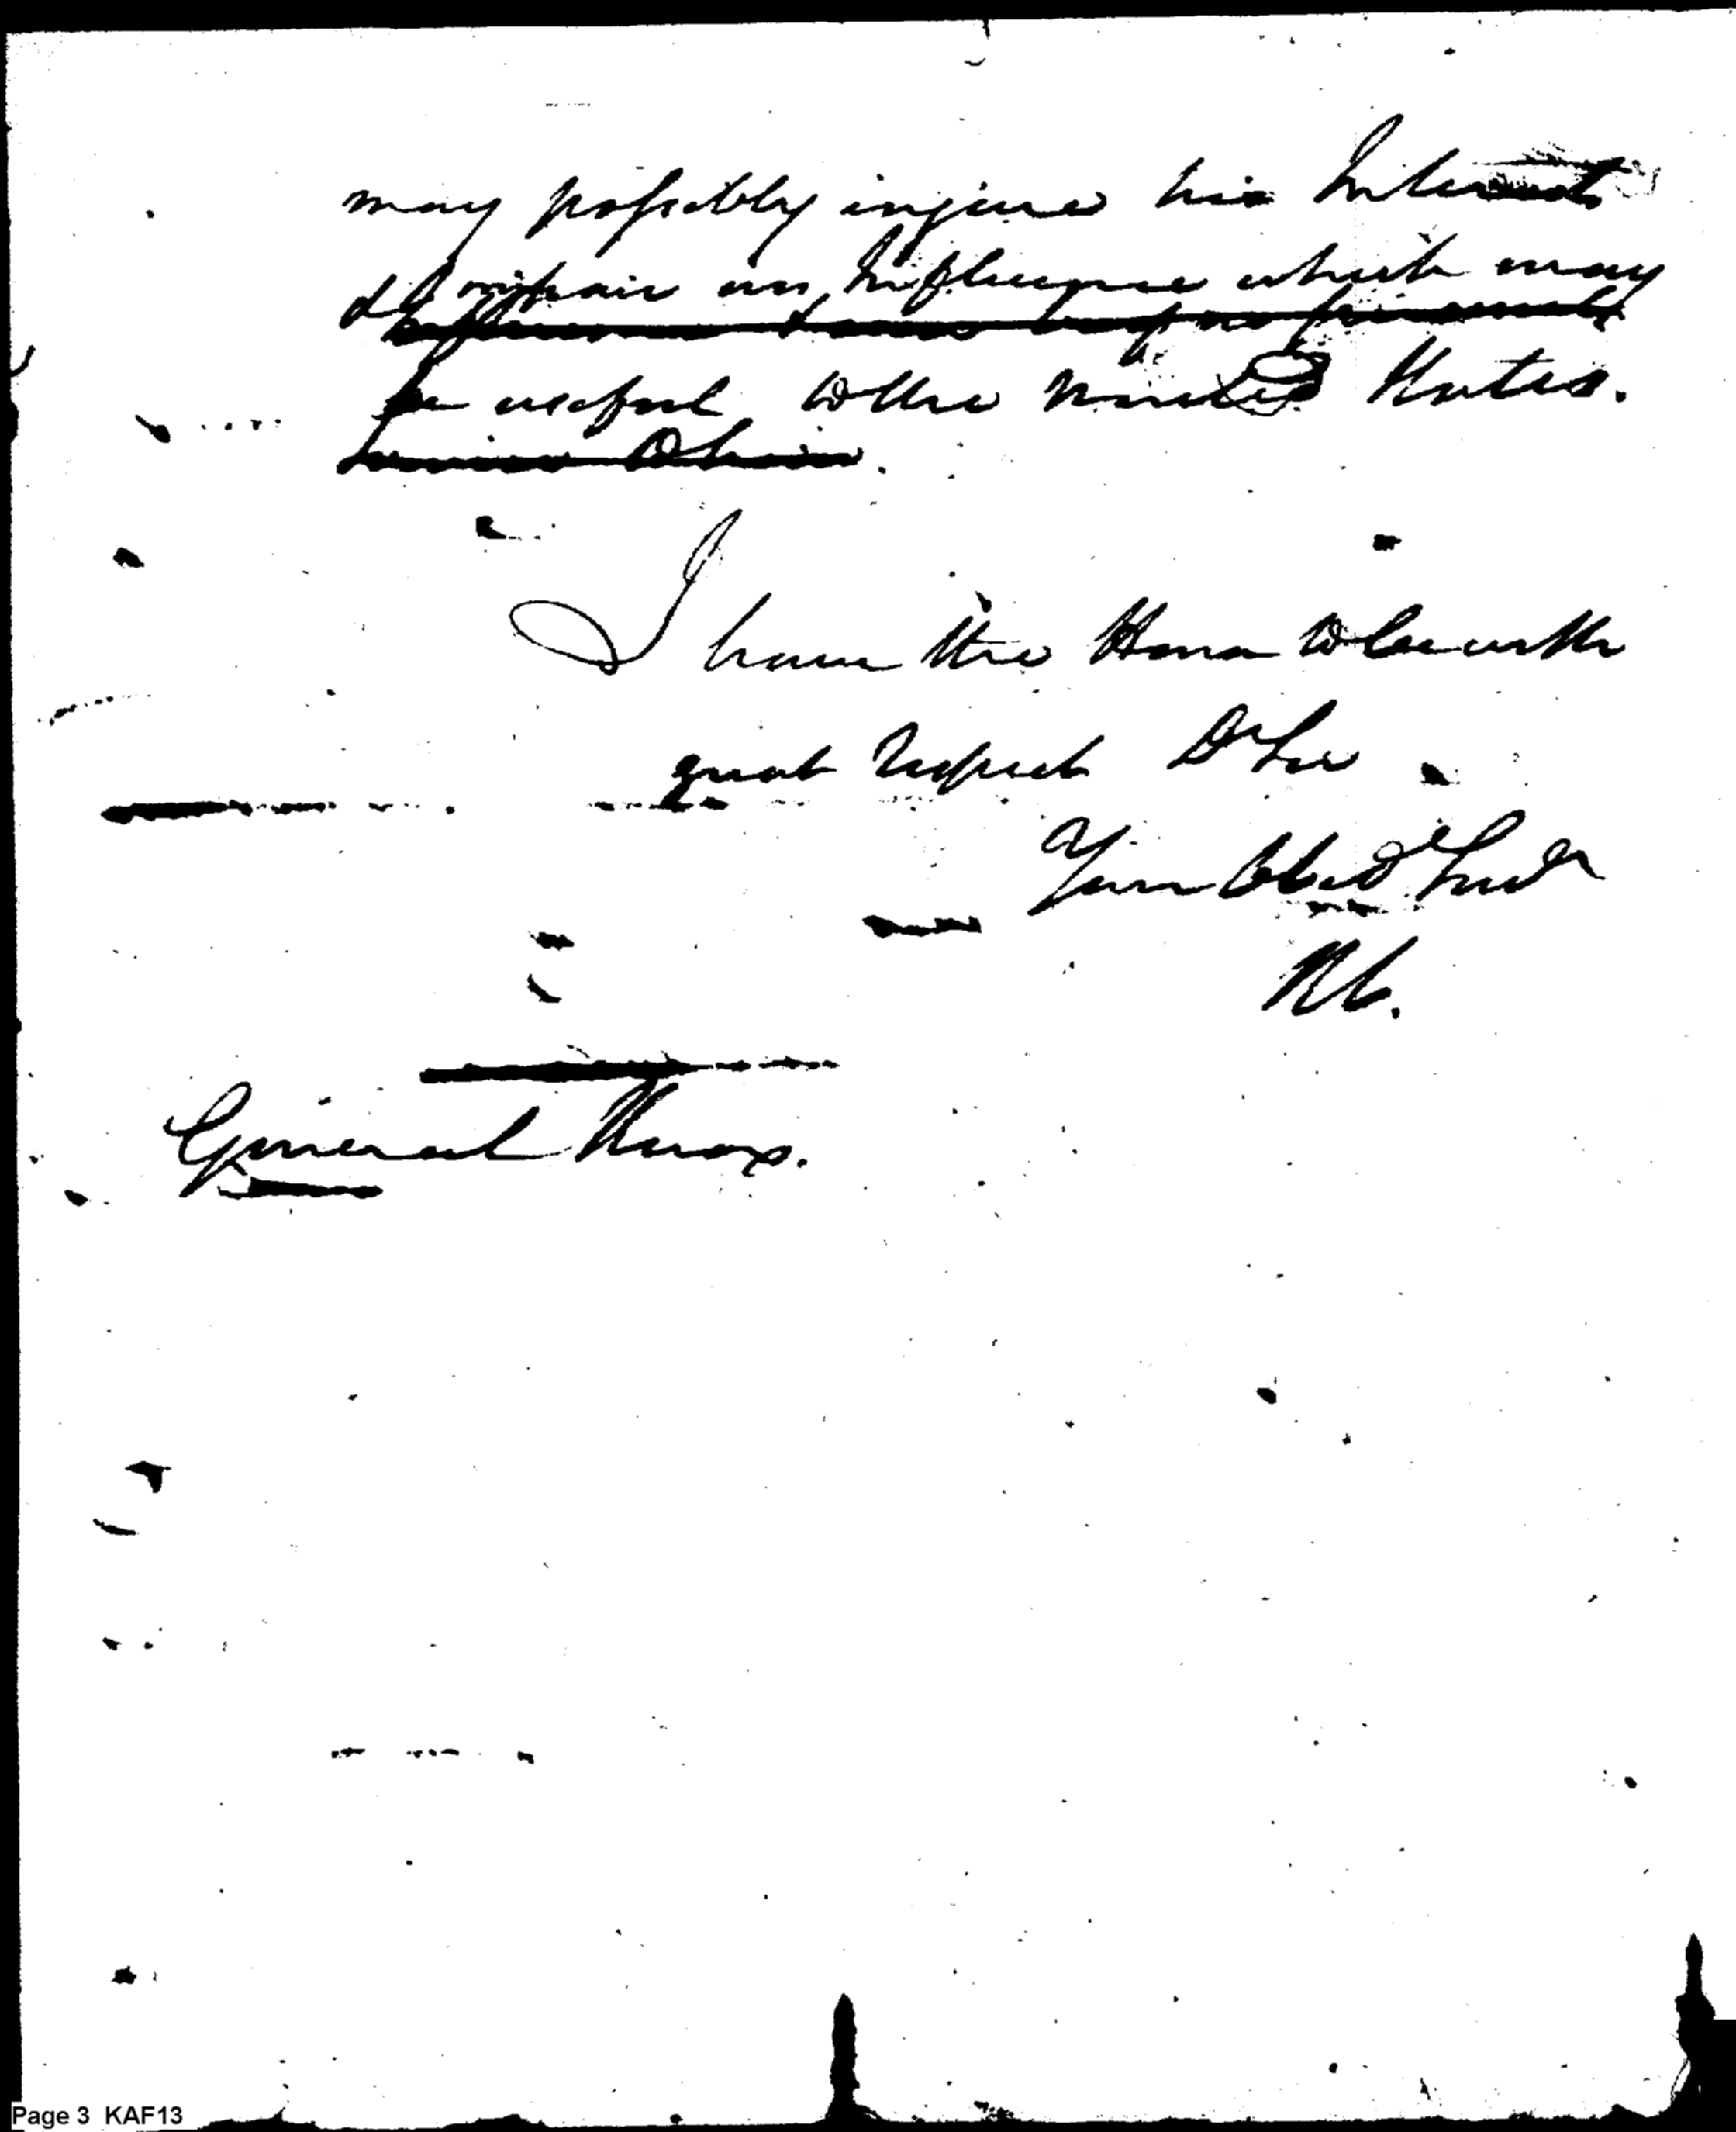 may possibly injure his Interest
& impair an Influence which may
be useful to the United States.
I have the Honor to be with
great Respect Dr Sir
Your Obedt Servt
General Knox.
Page 3 KAF13